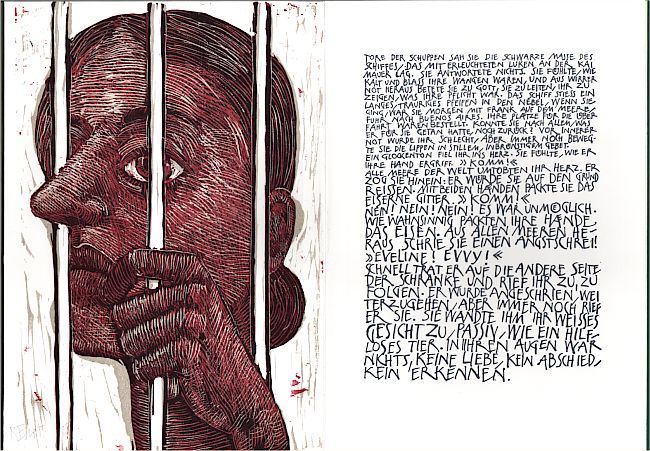 TORE DER SCHUPPEN SAH SIE DIE SCHWARZE MASSE DES
SCHIFFES, DAS MIT ERLEUCHTETEN LUKEN AN DER KAI
MAUER LAG. SIE ANTWORTETE NICHTS. SIE FÜHLTE, WIE
KALT UND BLASS IHRE WANGEN WAREN, UND AUS WIRRER
NOT HERAUS BETETE SIE ZU GOTT, SIE ZU LEITEN, IHR ZU
ZEIGEN, WAS IHRE PFLICHT WAR. DAS SCHIFF STIESS EIN
LANGES, TRAURIGES PFEIFEN IN DEN NEBEL, WENN SIE
GING, WAR SIE MORGEN MIT FRANK AUF DEM MEERE,
FUHR NACH BUENOS AIRES. IHRE PLÄTZE FÜR DIE ÜBER
FAHRT WAREN BESTELLT. KONNTE SIE NACH ALLEM, WAS
ER FÜR SIE GETAN HATTE, NOCH ZURÜCK? VOR INNERER
NOT WURDE IHR SCHLECHT, ABER IMMER NOCH BEWEG-
TE SIE DIE LIPPEN IN STILLEM, INBRÜNSTIGEM GEBET.
EIN GLOCKENTON FIEL IHR INS HERZ. SIE FÜHLTE, WIE ER
IHRE HAND ERGRIFF: » KOMM! «
ALLE MEERE DER WELT UMTOBTEN IHR HERZ. ER
ZOG SIE HINEIN: ER WÜRDE SIE AUF DEN GRUND
REISSEN. MIT BEIDEN HÄNDEN PACKTE SIE DAS
EISERNE GITTER. » KOMM! «
NEIN! NEIN! NEIN! ES WAR UNMÖGLICH.
WIE WAHNSINNIG PACKTEN IHRE HÄNDE
DAS EISEN. AUS ALLEN MEEREN HE-
RAUS SCHRIE SIE EINEN ANGSTSCHREI!
»EVELINE! EVVY!«
SCHNELL TRAT ER AUF DIE ANDERE SEITE
DER SCHRANKE UND RIEF IHR ZU, ZU
FOLGEN. ER WURDE ANGESCHRIEN, WEI
TERZUGEHEN, ABER IMMER NOCH RIEF
ER SIE. SIE WANDTE IHM IHR WEISSES
GESICHT ZU, PASSIV, WIE EIN HILF-
LOSES TIER. IN IHREN AUGEN WAR
NICHTS, KEINE LIEBE, KEIN ABSCHIED,
KEIN ERKENNEN.